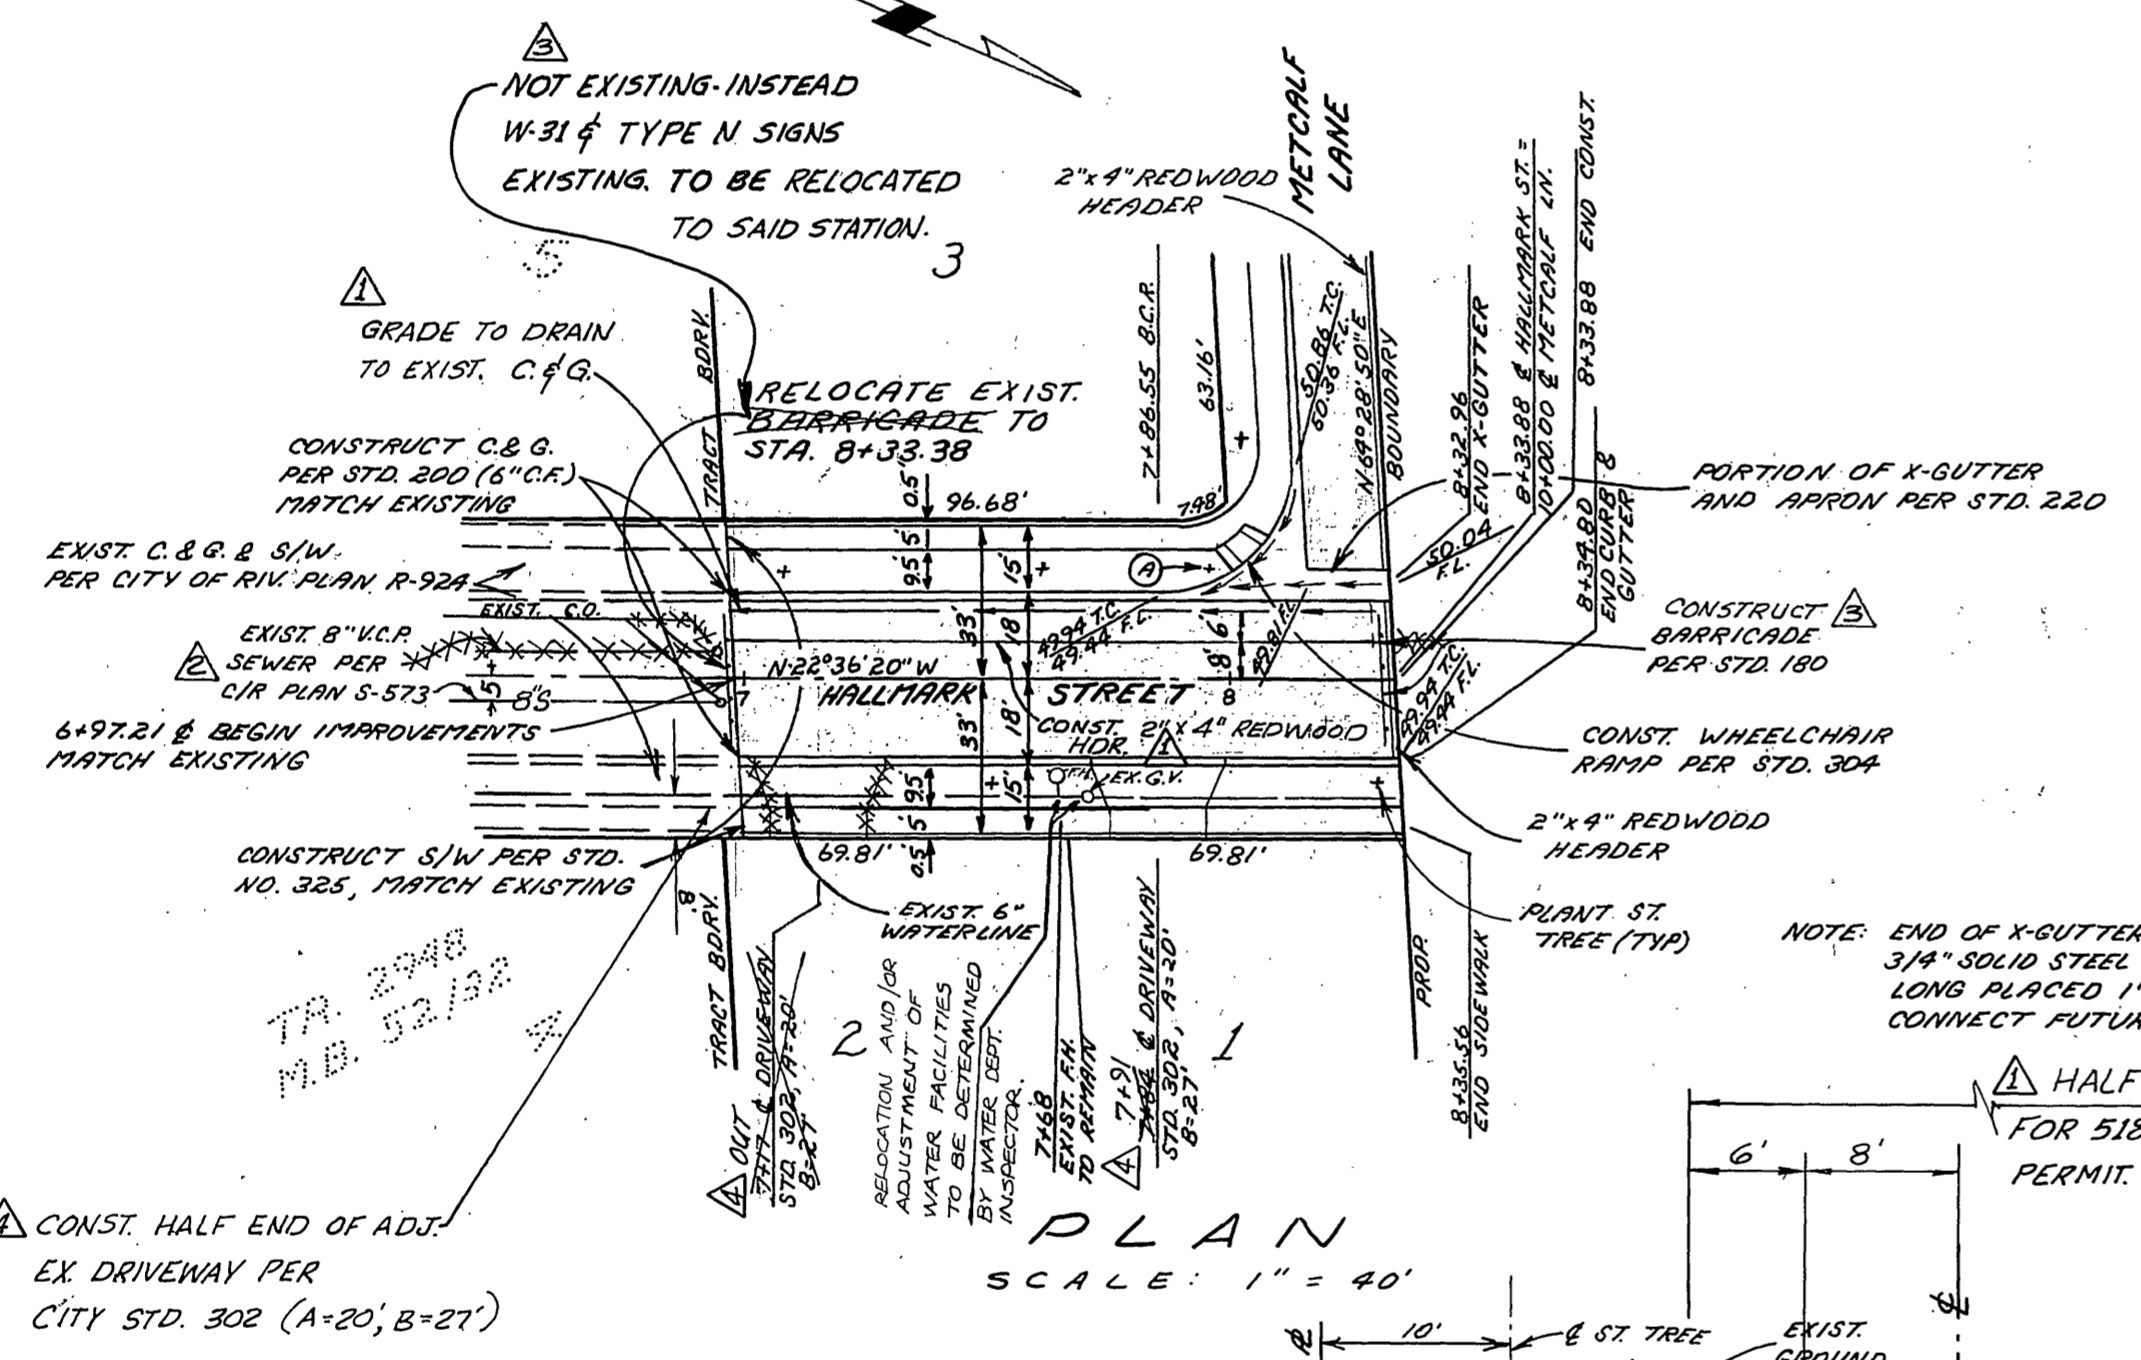 3
NOT EXISTING-INSTEAD
W-31 & TYPE N SIGNS
EXISTING. TO BE RELOCATED
TO SAID STATION.
5
3
1
GRADE TO DRAIN
TO EXIST. C. & G.
TRACT BDRY.
RELOCATE EXIST.
BARRICADE TO
STA. 8+33.38
CONSTRUCT C.& G.
PER STD. 200 (6"C.F.)
MATCH EXISTING
EXIST. C.& G. & S/W
PER CITY OF RIV. PLAN R-924
EXIST. C.O.
EXIST. 8" V.C.P.
2 SEWER PER
C/R PLAN S-573
5'
8"S
6+97.21 ℄ BEGIN IMPROVEMENTS
MATCH EXISTING
CONSTRUCT S/W PER STD.
NO. 325, MATCH EXISTING
8'
TR. 2948
M.B. 52/32
4
4 CONST. HALF END OF ADJ.
EX. DRIVEWAY PER
CITY STD. 302 (A=20', B=27')
2"x4" REDWOOD
HEADER
METCALF
LANE
7+86.55 B.C.R.
63.16'
50.86 T.C.
50.36 F.L.
N·64°28'50"E
BOUNDARY
8+32.96
END X-GUTTER
8+33.88 ℄ HALLMARK ST. =
10+00.00 ℄ METCALF LN.
8+33.88 END CONST.
8+34.80
END CURB &
GUTTER
PORTION OF X-GUTTER
AND APRON PER STD. 220
50.04
F.L.
0.5'
96.68'
7.98'
5'
9.5'
15'
A
33'
18'
49.94 T.C.
49.44 F.L.
6'
8'
49.81 F.L.
N·22°36'20"W
7
HALLMARK STREET
8
33'
18'
CONST. 2"x4" REDWOOD
HDR. 1
49.94 T.C.
49.44 F.L.
CONSTRUCT 3
BARRICADE
PER STD. 180
CONST. WHEELCHAIR
RAMP PER STD. 304
2"x4" REDWOOD
HEADER
PLANT ST.
TREE (TYP)
F.H.
EX. G.V.
9.5
15'
5'
69.81'
0.5'
69.81'
EXIST. 6"
WATERLINE
TRACT BDRY.
4 OUT
7+17 ℄ DRIVEWAY
STD. 302, A=20'
B=27'
2
RELOCATION AND/OR
ADJUSTMENT OF
WATER FACILITIES
TO BE DETERMINED
BY WATER DEPT.
INSPECTOR.
7+68
EXIST. F.H.
TO REMAIN
4 7+91
7+84 ℄ DRIVEWAY
STD. 302, A=20'
B=27'
1
PROP.
8+35.56
END SIDEWALK
NOTE: END OF X-GUTTER
3/4" SOLID STEEL
LONG PLACED 1'
CONNECT FUTUR
1 HALF
FOR 518
PERMIT.
6'
8'
℄
PLAN
SCALE: 1" = 40'
10'
℄ ST. TREE
EXIST.
GROUND